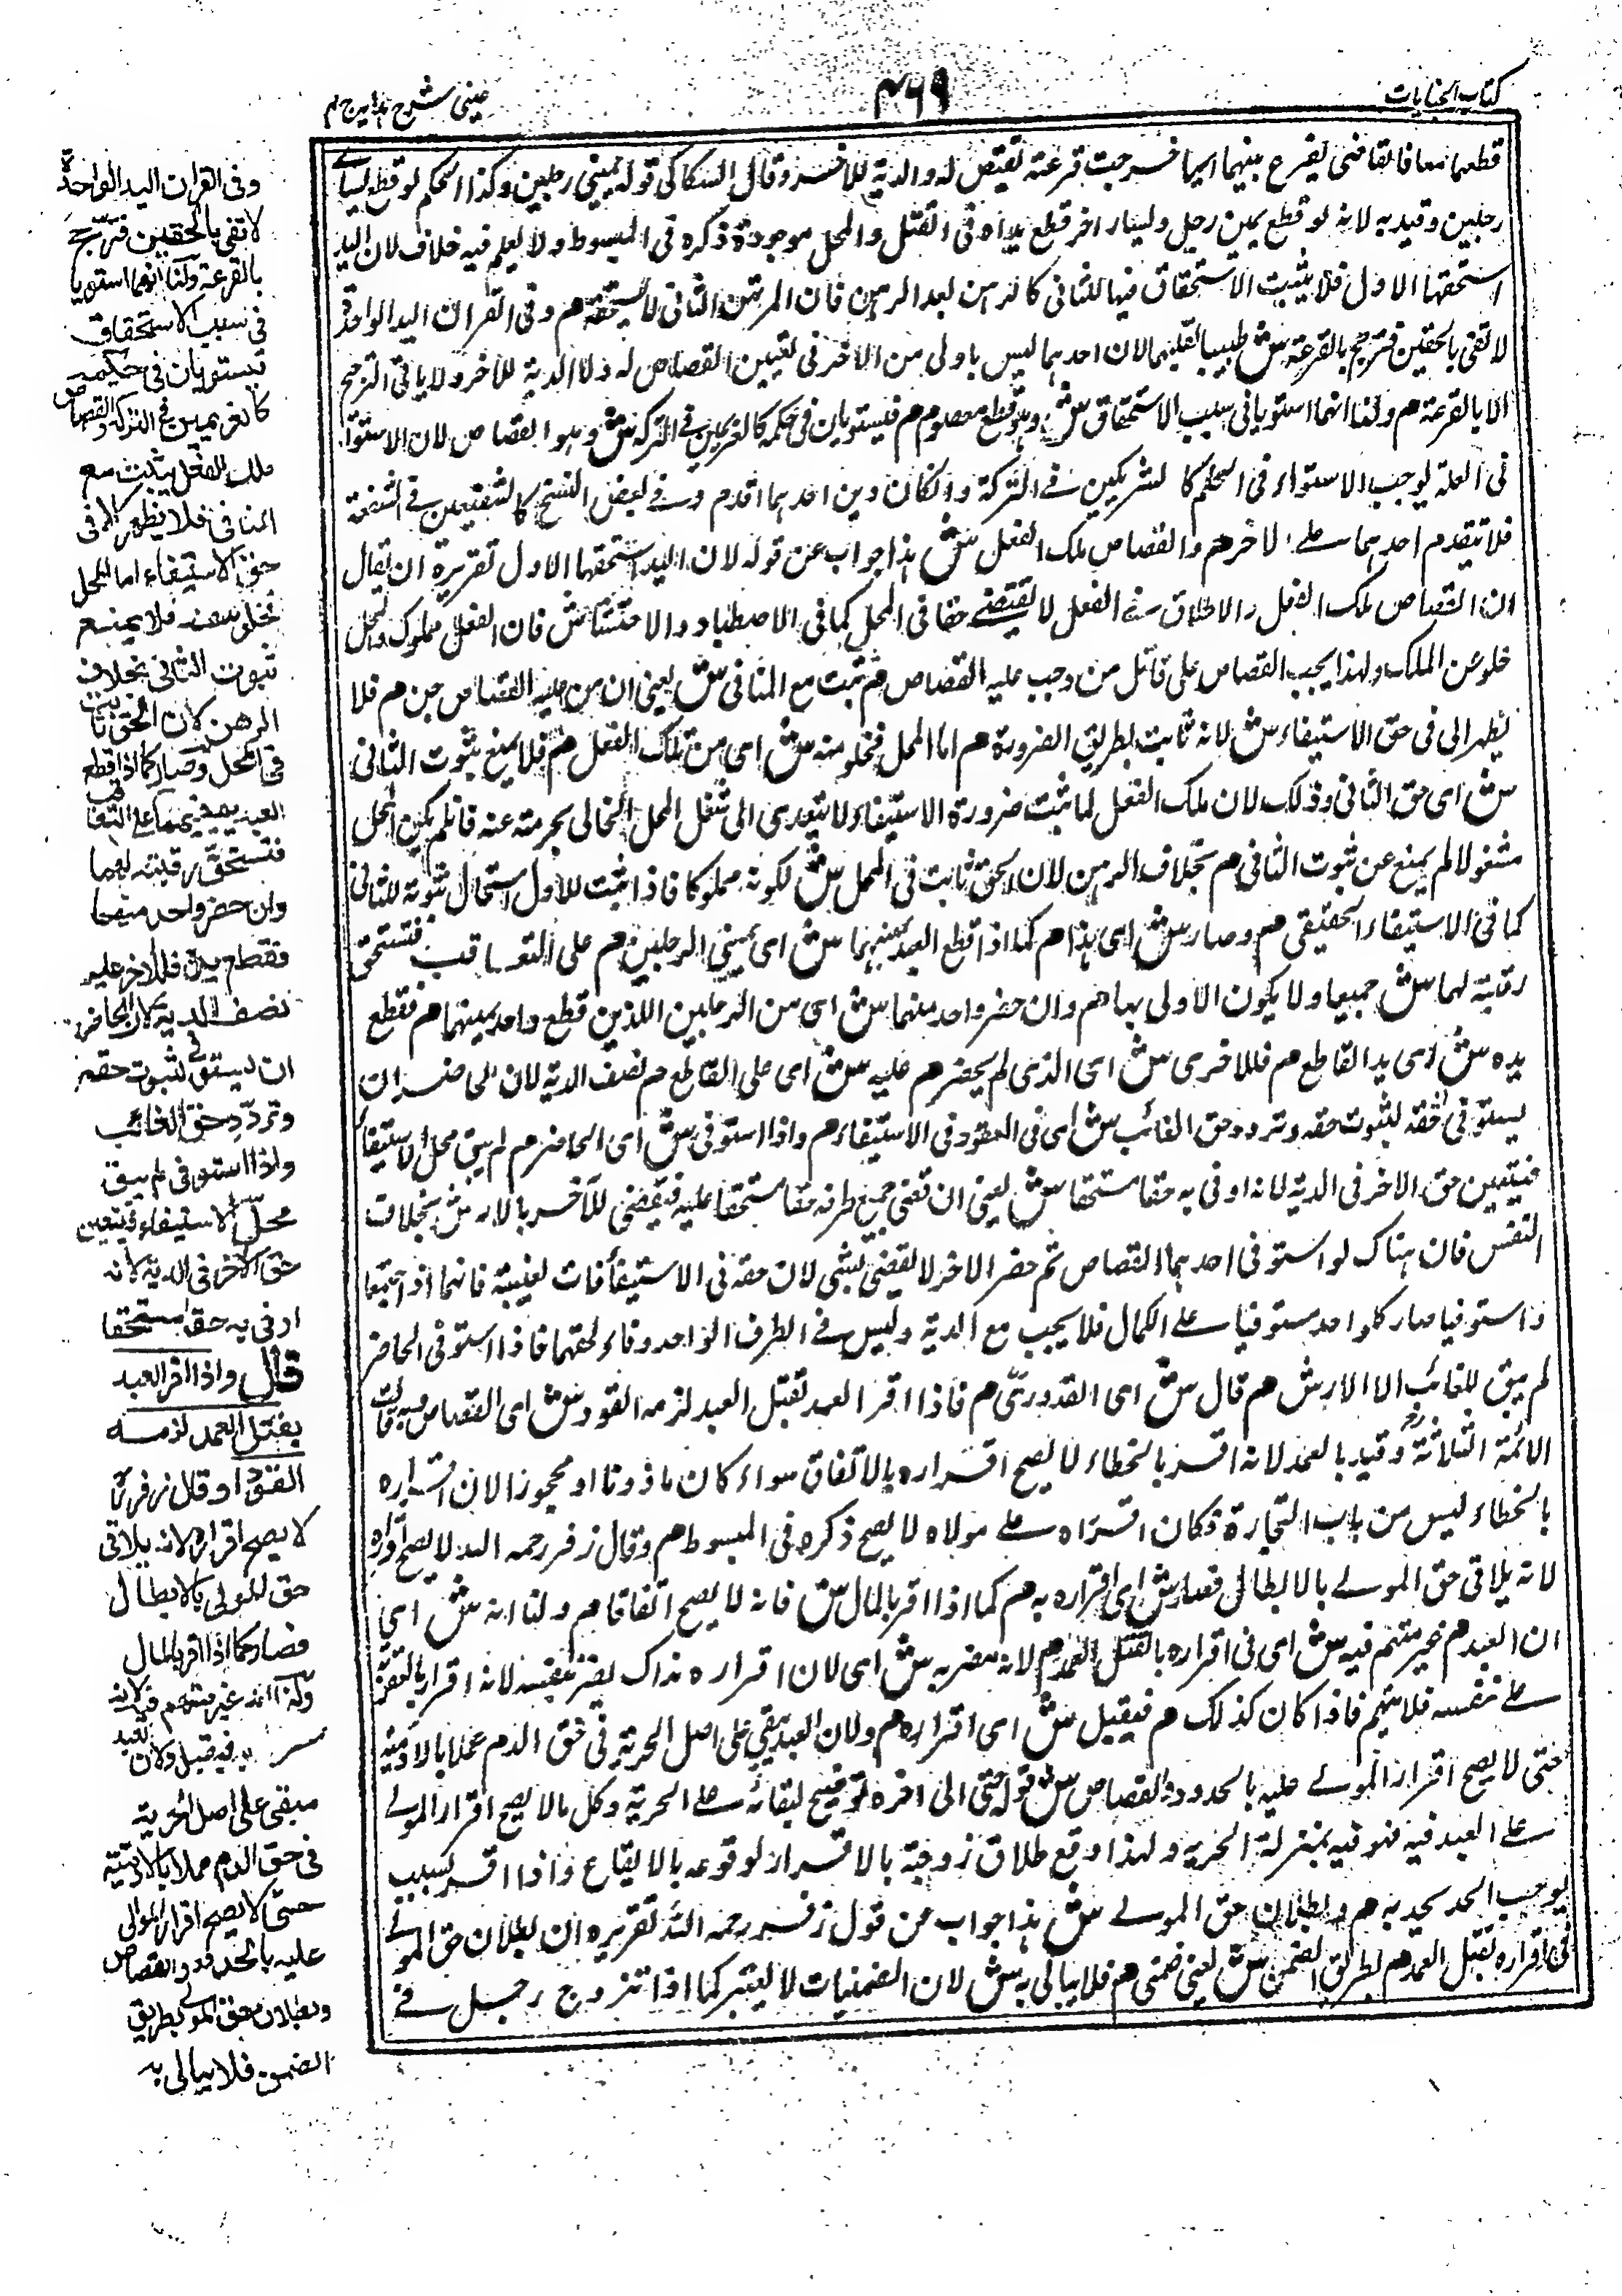 كتاب الجنايات
٤٦٩
عيني شرح هدايه ج ٤
قطعهما معا فالقاضي يقرع بينهما ايهما خرجت قرعته يقتص له والدية للآخر وقال السكاكي قوله يميني رجلين وكذا الحكم لو قطع يساري
رجلين وقيد به لانه لو قطع يمين رجل ويسار اخر قطع يداه في القتل والمحل موجودة ذكره في المبسوط ولا يعلم فيه خلاف لان اليد
استحقها الاول فلا يثبت الاستحقاق فيها للثاني كالرهن بعد الرهن فان المرتهن الثاني لا يستحقه هم وفي القران اليد الواحدة
لا تفي بالحقين فترجح بالقرعة ش تطييبا لقلبهما لان احدهما ليس باولى من الآخر في تعيين القصاص له ولا الدية للآخر ولا ياتي الترجح
الا بالقرعة هم ولنا انهما استويا في سبب الاستحقاق ش وهو قطع معصوم هم فيستويان في حكمه كالغريمين في التركة ش وهو القصاص لان الاستواء
في العلة يوجب الاستواء في الحكم كالشريكين في التركة وان كان دين احدهما اقدم وفي بعض النسخ كالشفيعين في الشفعة
فلا يتقدم احدهما على الآخر هم والقصاص ملك الفعل ش هذا جواب عن قوله لان اليد استحقها الاول تقريره ان يقال
ان القصاص ملك الفعل والاطلاق في الفعل لا يقتضي حقا في المحل كما في الاصطياد والاحتشاش فان الفعل مملوك والمحل
خلو عن الملك ولهذا يجب القصاص على قاتل من وجب عليه القصاص هم يثبت مع المنافي ش يعني ان من عليه القصاص حين هم فلا
يظهر الى في حق الاستيفاء ش لانه ثابت بطريق الضرورة هم اما المحل فخلو منه ش اى من تلك الفعل هم فلا يمنع ثبوت الثاني
ش اى حق الثاني وذلك لان ملك الفعل لما ثبت ضرورة الاستيفاء لا يتعدى الى شغل المحل الخالي بحرمته عنه فاذا لم يكن المحل
مشغولا لم يمنع عن ثبوت الثاني هم بخلاف الرهن لان الحق ثابت في المحل ش لكونه مملوكا فاذا ثبت للاول استحال ثبوته للثاني
كما في الاستيفاء الحقيقي هم وصار ش اى هذا هم كما اذا قطع العبد يمينهما ش اى يميني الرجلين هم على التعاقب فتستحق
رقبته لهما ش جميعا ولا يكون الاولى بها هم وان حضر واحد منهما ش اى من الرجلين اللذين قطع واحد يمينهما هم فقطع
يده ش اى يد القاطع هم فللاخرى ش اى الذي لم يحضر هم عليه ش اى على القاطع هم نصف الدية لان للحاضر ان
يستوفي حقه لثبوت حقه وتردد حق الغائب ش اى في العفو وفي الاستيفاء هم واذا استوفى ش اى الحاضر هم لم يبق محل الاستيفاء
فيتعين حق الاخر في الدية لانه اوفى به حقا مستحقا ش يعني ان قضى جميع طرفه حقا مستحقا عليه فيقضي للآخر بالارش بخلاف
النفس فان هناك لو استوفى احدهما القصاص ثم حضر الآخر لا يقضي بشيء لان حقه في الاستيفاء فات لغيبته فانهما اذا اجتمعا
واستوفيا صار كل واحد مستوفيا على الكمال فلا يجب مع الدية وليس في الطرف الواحد وفاء لحقهما فاذا استوفى الحاضر
لم يبق للغائب الا الارش هم قال ش اى القدوري هم فاذا اقر العبد بقتل العمد لزمه القود ش اى القصاص وبه قالت
الائمة الثلاثة وقيد بالعمد لانه اقر بالخطاء لا يصح اقراره بالاتفاق سواء كان ماذونا او محجورا لان اقراره
بالخطاء ليس من باب التجارة فكان اقراره على مولاه لا يصح ذكره في المبسوط هم وقال زفر رحمه الله لا يصح اقراره
لانه يلاقي حق المولى بالابطال فصار ش اى اقراره به هم كما اذا اقر بالمال ش فانه لا يصح اتفاقا هم ولنا انه ش اى
ان العبد هم غير متهم فيه ش اى في اقراره بالقتل العمد هم لانه مضر به ش اى لان اقراره بذاك يضر نفسه لانه اقرار بالعقوبة
على نفسه فلا يتهم فاذا كان كذلك هم فيقبل ش اى اقراره هم ولان العبد يبقي على اصل الحرية في حق الدم عملا بالادمية
حتى لا يصح اقرار المولى عليه بالحدود والقصاص ش قوله حتى الى اخره توضيح لبقائه على الحرية وكل ما لا يصح اقرار المولى
على العبد فيه فهو فيه بمنزلة الحرية ولهذا وقع طلاق زوجته بالاقرار لوقوعه بالايقاع واذا اقر بسبب
يوجب الحد يحد به هم وبطلان حق المولى ش هذا جواب عن قول زفر رحمه الله تقريره ان بطلان حق المولى
في اقراره بقتل العمد هم بطريق الضمن ش يعني ضمني هم فلا يبالى به ش لان الضمنيات لا يعتبر كما اذا تزوج رجل في
وفي القران اليد الواحدة
لا تفي بالحقين فترجح
بالقرعة ولنا انهما استويا
في سبب الاستحقاق
فيستويان في حكمه
كالغريمين في التركة والقصاص
ملك الفعل يثبت مع
المنافي فلا يظهر الا في
حق الاستيفاء اما المحل
فخلو منه فلا يمنع
ثبوت الثاني بخلاف
الرهن لان الحق ثابت
في المحل وصار كما اذا قطع
العبد يمينيهما على التعاقب
فتستحق رقبته لهما
وان حضر واحد منهما
فقطع يده فللاخر عليه
نصف الدية لان للحاضر
ان يستوفي لثبوت حقه
وتردد حق الغائب
واذا استوفى لم يبق
محل الاستيفاء فيتعين
حق الآخر في الدية لانه
اوفى به حقا مستحقا
قال واذا اقر العبد
بقتل العمد لزمه
القود وقال زفر
لا يصح اقراره لانه يلاقي
حق المولى بالابطال
فصار كما اذا اقر بالمال
ولنا انه غير متهم فيه لانه
مضر به فيقبل ولان العبد
مبقى على اصل الحرية
في حق الدم عملا بالادمية
حتى لا يصح اقرار المولى
عليه بالحدود والقصاص
وبطلان حق المولى بطريق
الضمن فلا يبالى به